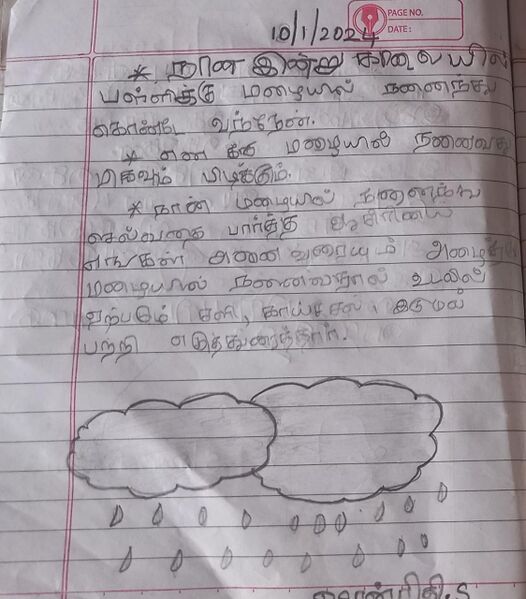 PAGE NO.
DATE:
10/1/2024
* நான் இன்று காலையில்
பள்ளிக்கு மழையில் நனைந்து
கொண்டே வந்தேன்.
* என க்கு மழையில் நனைவது
மிகவும் பிடிக்கும்.
* நான் மழையில் நனைந்து
செல்வதை பார்த்த ஆசிரியை
எங்கள் அனைவரையும் அழைத்து
மழையில் நனைவதால் உடலில்
ஏற்படும் சளி, காய்ச்சல், இருமல்
பற்றி எடுத்துரைத்தார்.